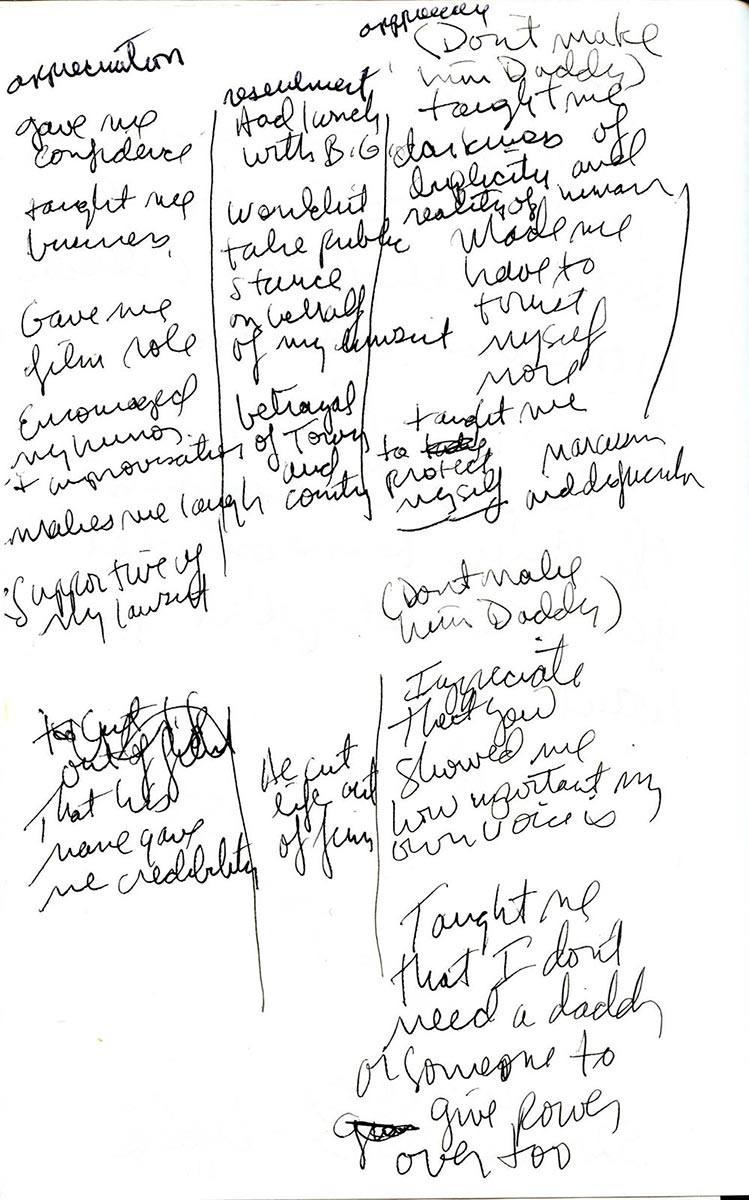 appreciation
gave me
confidence
taught me
business
Gave me
film role
Encouraged
my humor
+ improvisation
makes me laugh
Supportive of
my lawsuit
to cut
out of film
That his
name gave
me credibility
resentment
Had lunch
with B.G
wouldn't
take public
stance
on behalf
of my lawsuit
betrayal
of Town
and
country
He cut
life out
of film
(Don't make
him Daddy)
taught me
darkness of
duplicity and
reality of human
Made me
have to
trust
myself
more
taught me
to
protect
myself
(Dont make
him Daddy)
I appreciate
that you
showed me
how important my
own voice is
Taught me
that I don't
need a daddy
or someone to
give power
over too